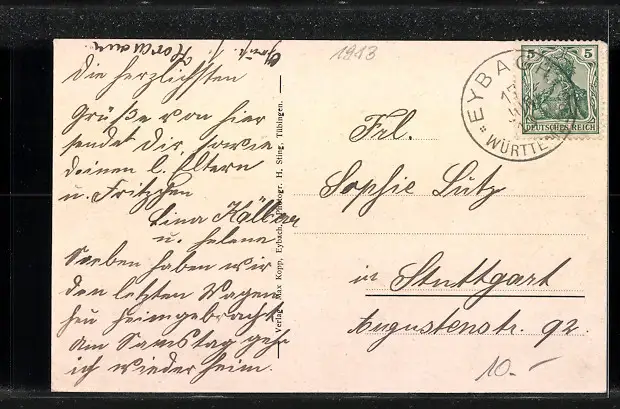 Gruß
Hermann
Die herzlichsten
Grüße von hier
sendet Dir, sowie
deinen l. Eltern
u. Fritzchen
Lina
u. Helene
Soeben haben wir
den letzten Wagen
heu heimgebracht
Am Samstag geh
ich wieder heim.
Verlag Max Kopp, Eybach. Photogr. H. Sting, Tübingen.
1913
EYBACH
WÜRTTE
5 5
DEUTSCHES REICH
Frl.
Sophie Lutz
in Stuttgart
Augustenstr. 92.
10.-